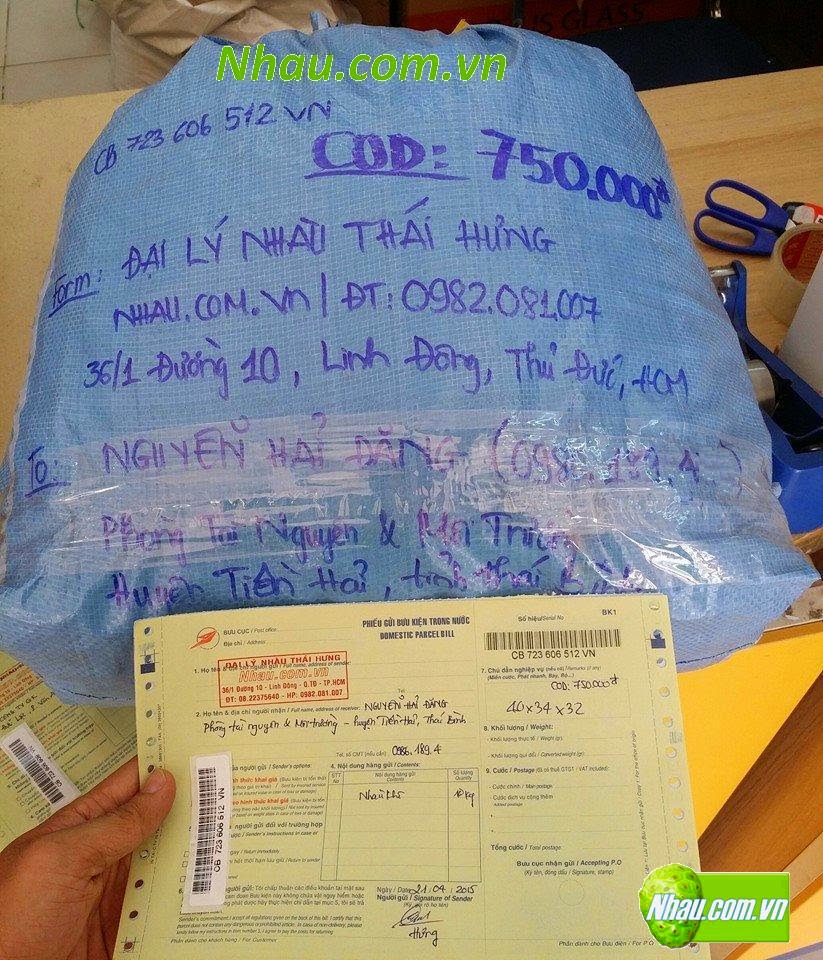 'S GLASS
Nhau.com.vn
CB 723 606 512 VN
COD: 750.000đ
Form: ĐẠI LÝ NHÀU THÁI HƯNG
NHAU.COM.VN | ĐT: 0982.081.007
36/1 Đường 10, Linh Đông, Thủ Đức, HCM
To: NGUYỄN HẢI ĐĂNG (0986.189.4
Phòng Tài Nguyên & Môi Trường
Huyện Tiền Hải, tỉnh Thái Bình
PHIẾU GỬI BƯU KIỆN TRONG NƯỚC
DOMESTIC PARCEL BILL
BƯU CỤC / Post office
Địa chỉ / Address
Số hiệu/Serial No
BK1
CB 723 606 512 VN
1. Họ tên & địa chỉ người gửi / Full name, address of sender:
ĐẠI LÝ NHÀU THÁI HƯNG
Nhau.com.vn
36/1 Đường 10 - Linh Đông - Q.TĐ - TP.HCM
ĐT: 08.22375640 - HP: 0982.081.007
Tel
2. Họ tên & địa chỉ người nhận / Full name, address of receiver: NGUYỄN HẢI ĐĂNG
Phòng tài nguyên & Môi trường - huyện Tiền Hải, Thái Bình
Tel. số CMT (nếu cần) 0986.189.4
7. Chú dẫn nghiệp vụ (nếu có) / Remarks (if any)
COD: 750.000đ
40x34x32
8. Khối lượng / Weight:
Khối lượng thực tế / Weight (gr):
Khối lượng qui đổi / Converted weight (gr):
9. Cước / Postage (Đã có thuế GTGT / VAT included):
Cước chính / Main postage
Cước dịch vụ cộng thêm
Added postage
Tổng cước / Total postage:
Bưu cục nhận gửi / Accepting P.O
(Ký tên, đóng dấu / Signature, stamp)
của người gửi / Sender's options:
4. Nội dung hàng gửi / Contents:
STT
No
Nội dung hàng gửi
Contents
Số lượng
Quantity
Nhàu khô
10 kg
CB 723 606 512 VN
Ngày / Date 21.04.2015
Người gửi / Signature of Sender
(Ký, ghi rõ họ tên)
Hưng
Sender's commitment: I accept general regulations given on the back of this bill. I certify that this
parcel does not contain any dangerous or prohibited article. In case of non-delivery, please
kindly follow my instructions in item number 5, I agree to pay the costs for returning
Phần dành cho khách hàng / For Customer
Phần dành cho Bưu điện / For P.O
Nhau.com.vn